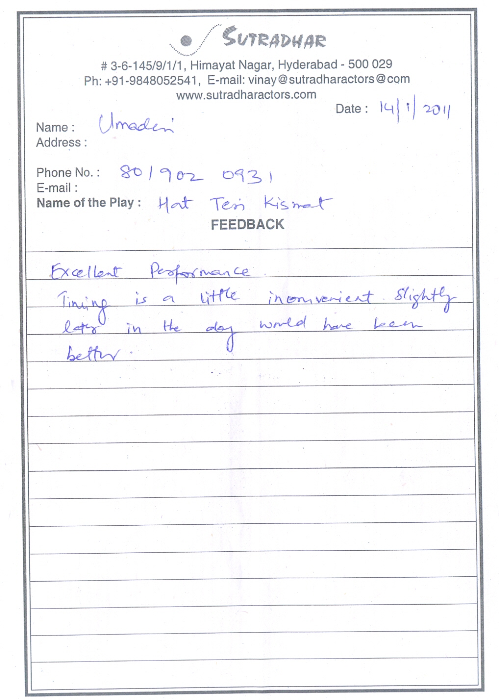 SUTRADHAR
# 3-6-145/9/1/1, Himayat Nagar, Hyderabad - 500 029
Ph: +91-9848052541, E-mail: vinay@sutradharactors@com
www.sutradharactors.com
Date : 14/1/2011
Name : Umadevi
Address :
Phone No. : 801902 0931
E-mail :
Name of the Play : Hat Teri Kismat
FEEDBACK
Excellent Performance.
Timing is a little inconvenient. Slightly
later in the day would have been
better.